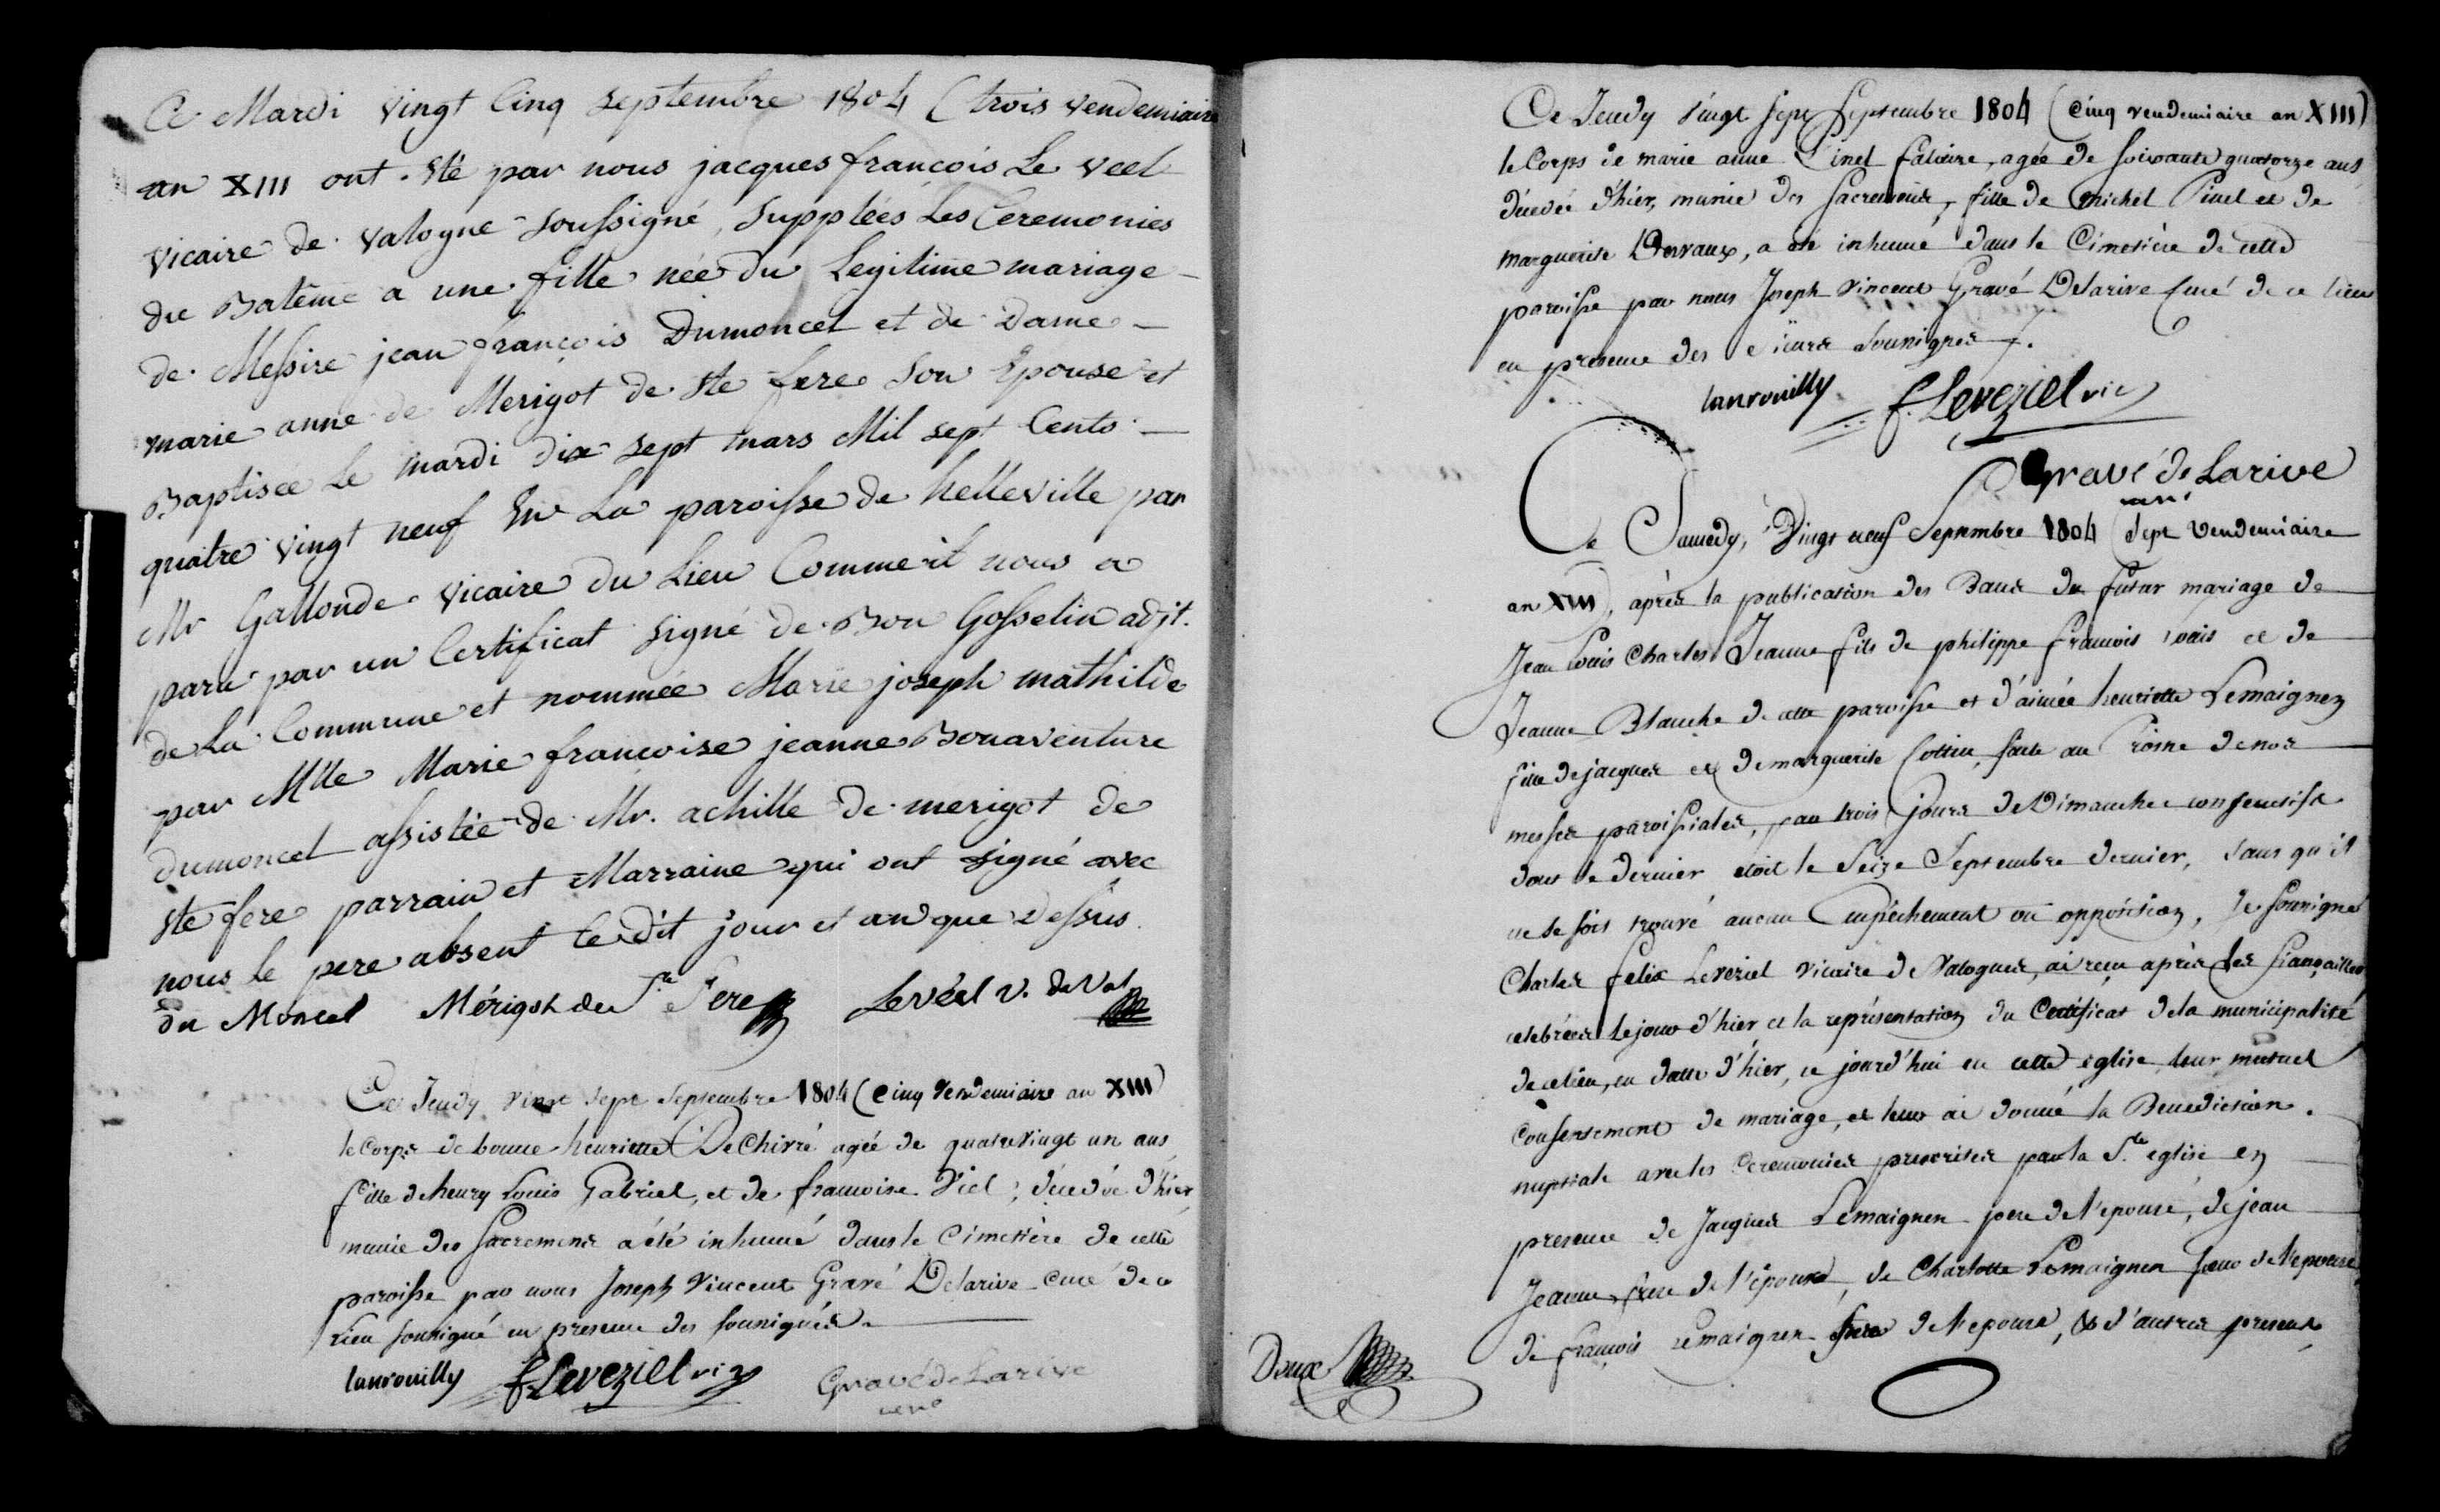 Ce Mardi vingt Cinq septembre 1804 (trois vendemiaire
an XIII ont été par nous jacques francois Le veel
vicaire de valogne soussigné, suppléés Les Ceremonies
du Batême a une fille née du Legitime mariage
de Messire jean françois Dumoncel et de Dame
marie anne de Merigot de Ste fere son Epouse et
Baptisée le mardi dix sept mars Mil sept Cents
quatre vingt neuf En La paroisse de helleville par
Mr Gallonde vicaire du Lieu Comme il nous a
paru par un Certificat signé de Bon Gosselin adjt.
de La Commune et nommée Marie joseph mathilde
par Mlle Marie francoise jeanne Bonaventure
dumoncel assistée de Mr. achille de merigot de
Ste fere parrain et Marraine qui ont signé avec
nous le pere absent le dit jour et an que Dessus.
du Moncel Mérigot de Ste Fere Levéel v. de Val
Ce Jeudy vingt sept septembre 1804 (cinq vendemiaire an XIII)
le Corps de bonne henriette DeChivré agée de quatrevingt un ans
fille de henry Louis Gabriel, et de francoise Viel; décedée d'hier
munie des Sacremens a été inhumé dans le Cimetière de cette
paroisse par nous Joseph Vincent Gravé Delarive curé de ce
Lieu soussigné en presence des soussignés.
lanrouilly f. Leveziel vic
Gravé de Larive
curé
Ce Jeudy vingt sept Septembre 1804 (cinq vendemiaire an XIII)
le Corps de marie anne Pinel, agée de soixante quatorze ans
décedée d'hier, munie des Sacremens, fille de Michel Pinel et de
marguerite Dorvaux, a été inhumé dans le Cimetière de cette
paroisse par nous Joseph Vincent Gravé Delarive Curé de ce lieu
en presence des sieurs soussignes.
lanrouilly f. Leveziel vic
Gravé de Larive
curé
Ce Samedy, vingt neuf Septembre 1804 (Sept vendemiaire
an XIII), après la publication des Bans du futur mariage de
Jean Louis Charles Jeanne fils de philippe francois et de
Jeanne Blanche de cette paroisse et d'aimée henriette Lemaignen
fille de jacques et de marguerite Cottin, faite au Prosne de nos
messes paroissiales, par trois jours de Dimanches consecutifs
dont le dernier etoit le Seize Septembre dernier, sans qu'il
ne se soit trouvé aucun Empêchement ou opposition, Je soussigné
Charles felix Leveziel vicaire de Valognes, ai reçu après les fiançailles
celebrées le jour d'hier et la représentation du Certificat de la municipalité
de ce lieu, en date d'hier, ce jourd'hui en cette église leur mutuel
Consentement de mariage, et leur ai donné la Benediction
nuptiale avec les Ceremonies prescrites par la Ste eglise en
presence de Jacques Lemaignen pere de l'epouse, de jean
Jeanne frere de l'époux, de Charlotte Lemaignen soeur de l'epouse
de françois Lemaignen frere de l'epouse, & d'autres presents
Doux